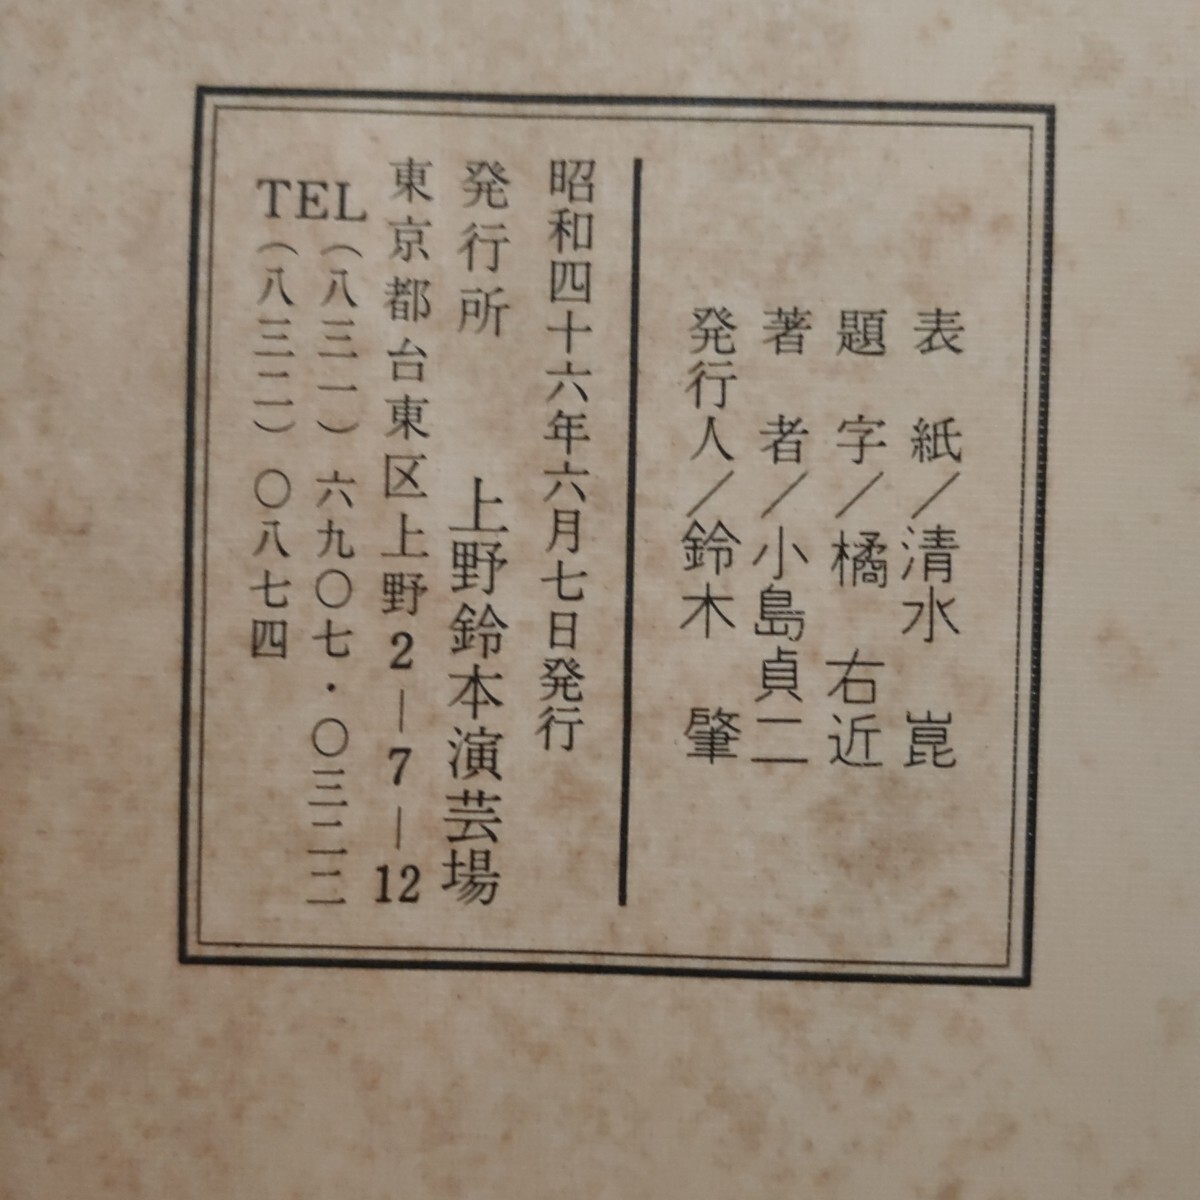 表紙／清水崑
題字／橘右近
著者／小島貞二
発行人／鈴木肇
昭和四十六年六月七日発行
発行所　上野鈴本演芸場
東京都台東区上野2－7－12
TEL（八三一）六九〇七・〇三二二
（八三二）〇八七四